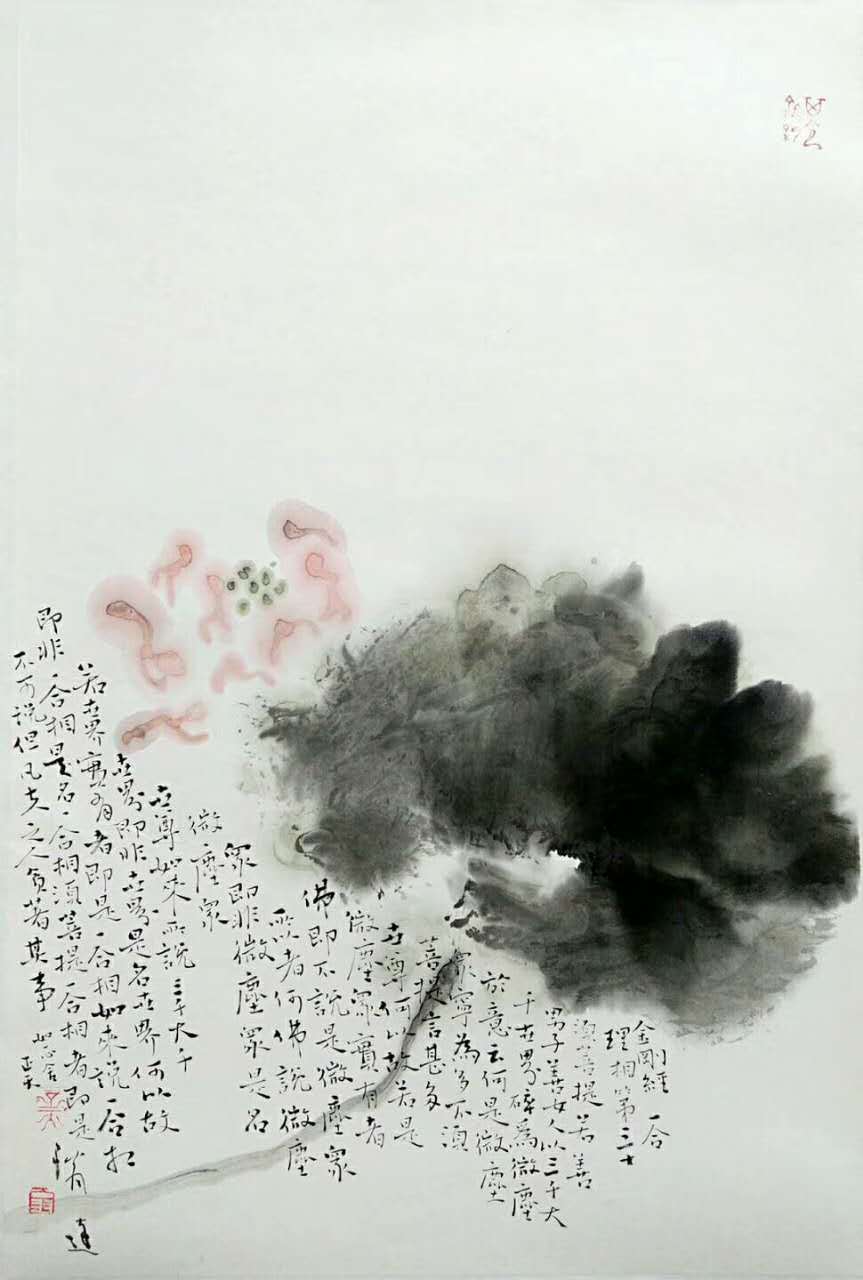 金剛經 一合
理相第三十
須菩提若善
男子善女人以三千大
千世界碎為微塵
於意云何是微塵
眾寧為多不須
菩提言甚多
世尊何以故若是
微塵眾實有者
佛即不說是微塵眾
所者何佛說微塵
眾即非微塵眾是名
微塵眾
世尊如來所說三千大千
世界即非世界是名世界何以故
若世界實有者即是一合相如來說一合相
即非一合相是名一合相須菩提一合相者即是
不可說但凡夫之人貪著其事